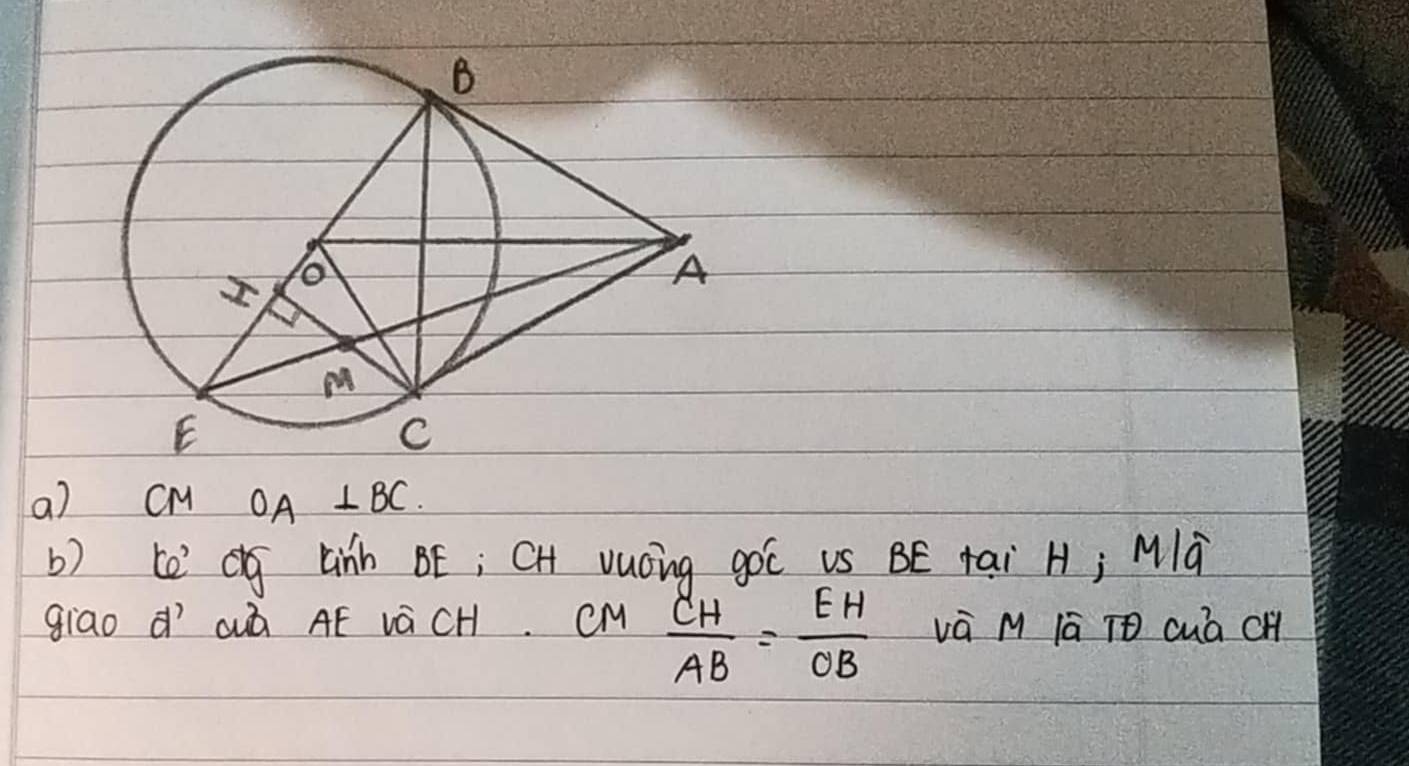 B
A
H
O
M
E
C
a) CM OA ⊥ BC.
b) kẻ đg kính BE ; CH vuông góc vs BE tại H ; M là
giao đ' của AE và CH . CM CH/AB = EH/OB và M là TĐ của CH